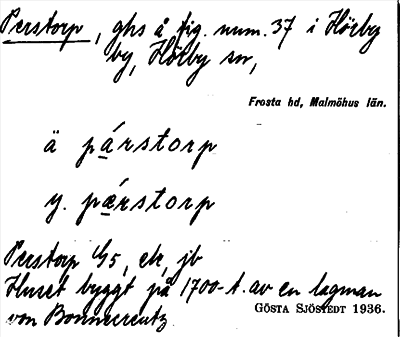 Perstorp, ghs å fig. num. 37 i Hörby
by, Hörby sn,
Frosta hd, Malmöhus län.
ä párstorp
y. pǽrstorp
Perstorp G5, ek, jb
Huset byggt på 1700-t. av en lagman
von Bonnecreutz.
GÖSTA SJÖSTEDT 1936.